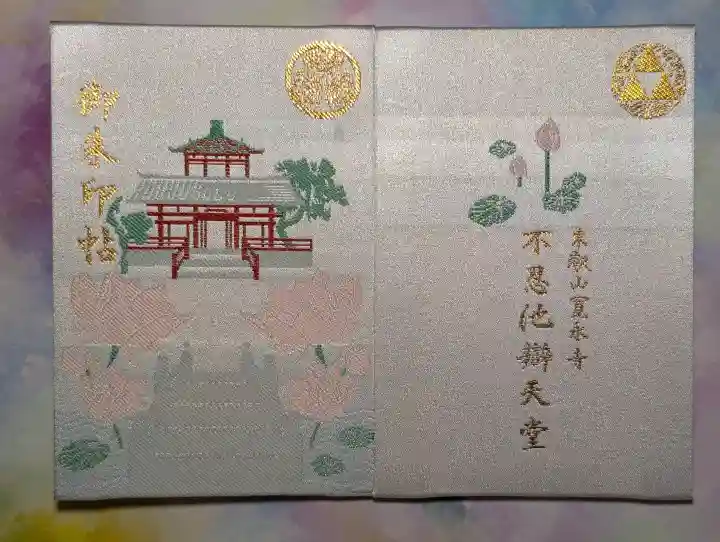 御朱印帖
東叡山寛永寺
不忍池辯天堂